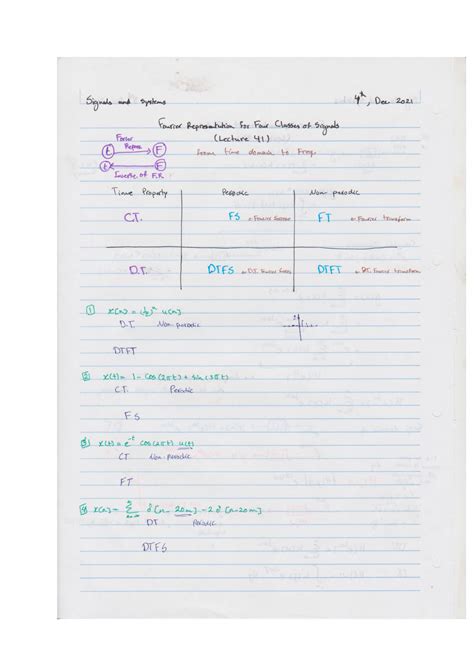 Signals and systems 4th, Dec 2021
Fourier Representation For Four Classes of Signals
(Lecture 41)
Fourier
Repres.
t F
From time domain to Freq.
t F
Inverse of F.R
Time Property Periodic Non-periodic
C.T. FS Fourier Series FT Fourier transform
D.T. DTFS D.T. Fourier Series DTFT D.T. Fourier transform
1 x[n] = (1/2)^n u[n]
D.T. Non-periodic
DTFT
2 x(t) = 1 - cos(2πt) + sin(3πt)
C.T. Periodic
FS
3 x(t) = e^-t cos(2πt) u(t)
CT Non-periodic
FT
4 x[n] = Σ δ[n-20m] - 2δ[n-20m]
DT Periodic
DTFS